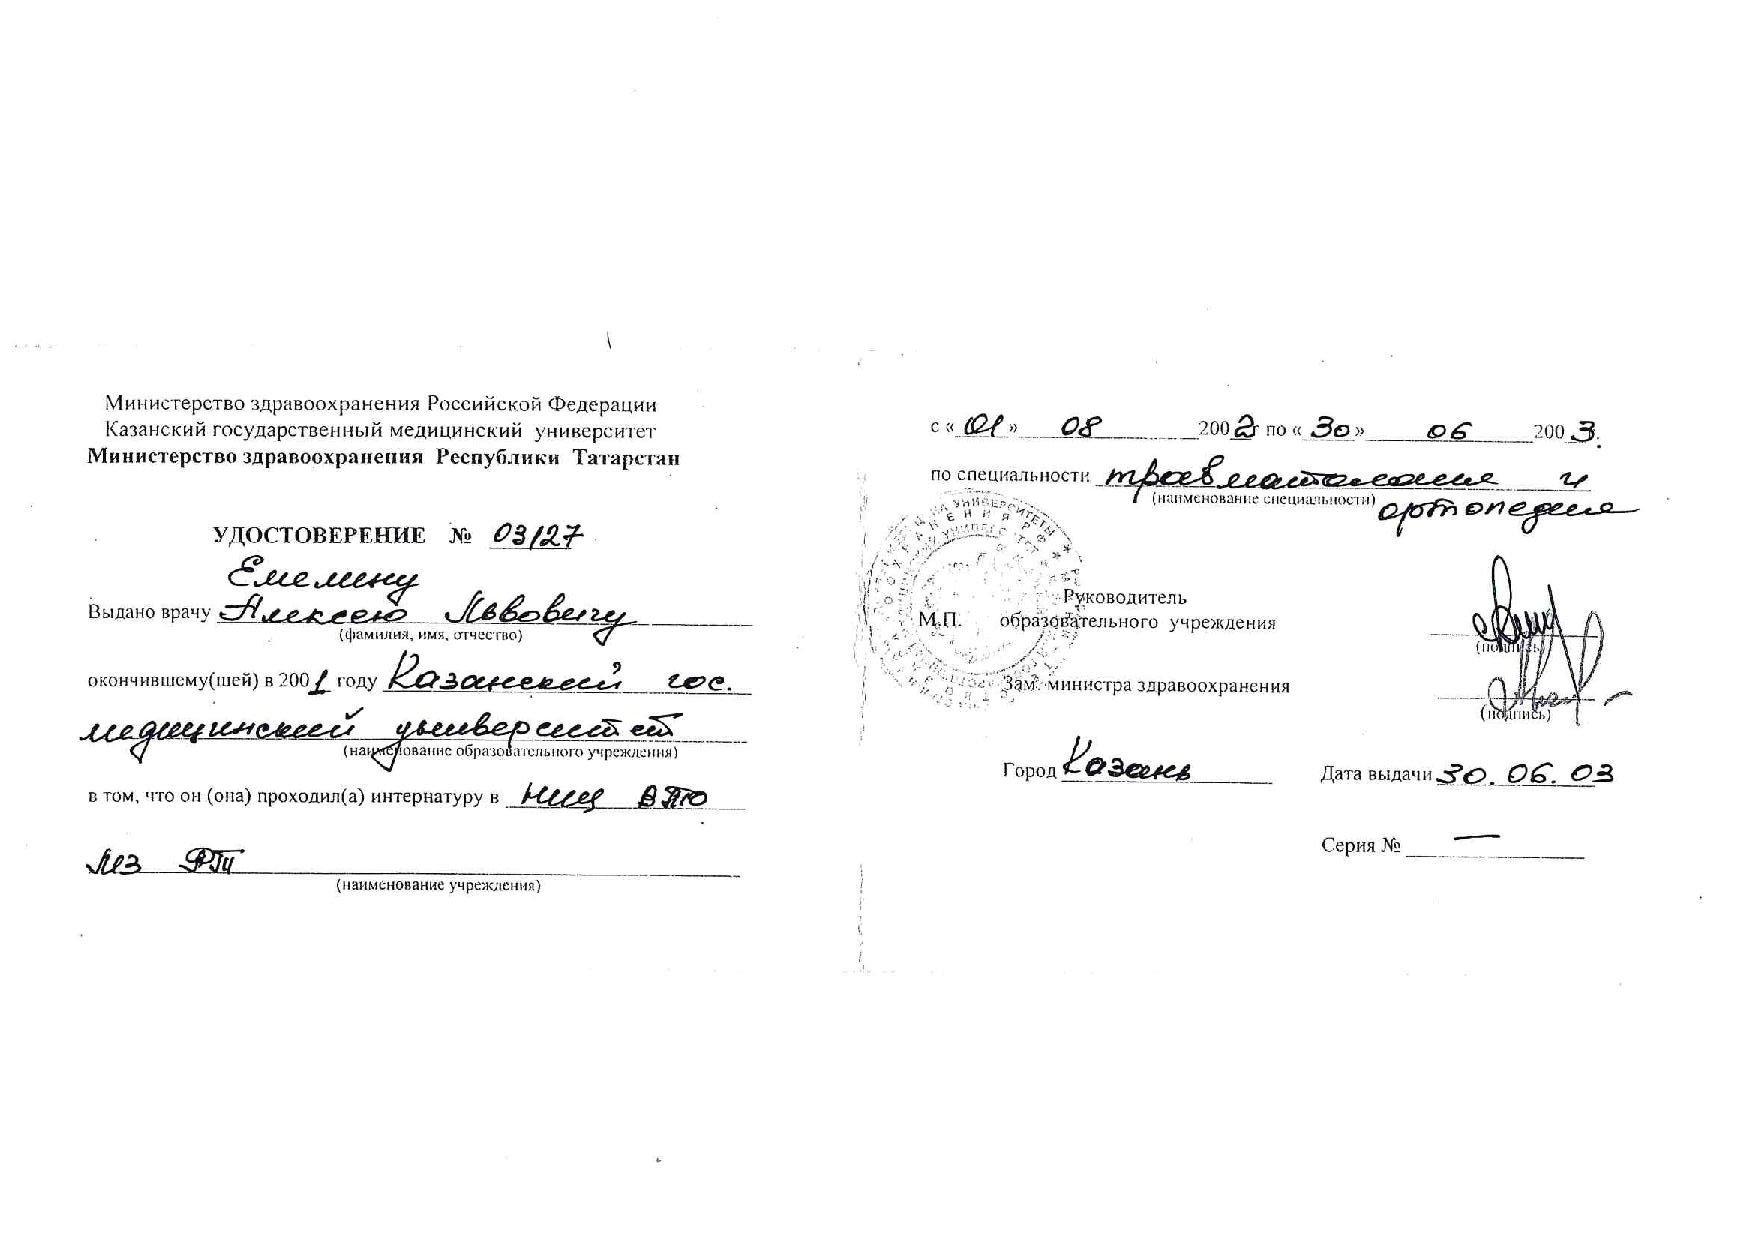 Министерство здравоохранения Российской Федерации
Казанский государственный медицинский университет
Министерство здравоохранения Республики Татарстан
УДОСТОВЕРЕНИЕ № 03/27
Емелину
Выдано врачу Алексею Львовичу
(фамилия, имя, отчество)
окончившему(шей) в 2001 году Казанский гос.
медицинский университет
(наименование образовательного учреждения)
в том, что он (она) проходил(а) интернатуру в НИЦ ВТО
МЗ РТ
(наименование учреждения)
с «01» 08 2002г по «30» 06 2003.
по специальности травматология и
(наименование специальности) ортопедия
Руководитель
М.П. образовательного учреждения
(подпись)
Зам. министра здравоохранения
(подпись)
Город Казань Дата выдачи 30.06.03
Серия № —